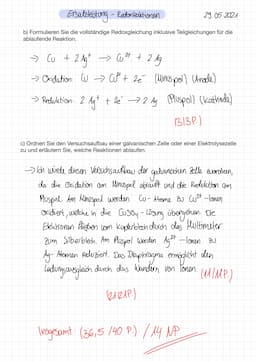 Ersatzleistung - Redoxreaktionen
29.05.2021
b) Formulieren Sie die vollständige Redoxgleichung inklusive Teilgleichungen für die
ablaufende Reaktion.
→ Cu + 2 Ag⁺ → Cu²⁺ + 2 Ag
→ Oxidation Cu → Cu²⁺ + 2e⁻ (Minuspol) (Anode)
→ Reduktion 2 Ag⁺ + 2e⁻ → 2 Ag (Pluspol) (Kathode)
(3|3P.)
c) Ordnen Sie den Versuchsaufbau einer galvanischen Zelle oder einer Elektrolysezelle
zu und erläutern Sie, welche Reaktionen ablaufen.
→ Ich würde diesen Versuchsaufbau der galvanischen Zelle zuordnen,
da die Oxidation am Minuspol abläuft und die Reduktion am
Pluspol. Am Minuspol werden Cu - Atome zu Cu²⁺ - Ionen
oxidiert, welche in die CuSO₄ - Lösung übergehen. Die
Elektronen fließen vom Kupferblech durch das Multimeter
zum Silberblech. Am Pluspol werden Ag⁺ - Ionen zu
Ag - Atomen reduziert. Das Diaphragma ermöglicht den
Ladungsausgleich durch das Wandern von Ionen.
Insgesamt (36,5 / 40 P.) / 14 NP